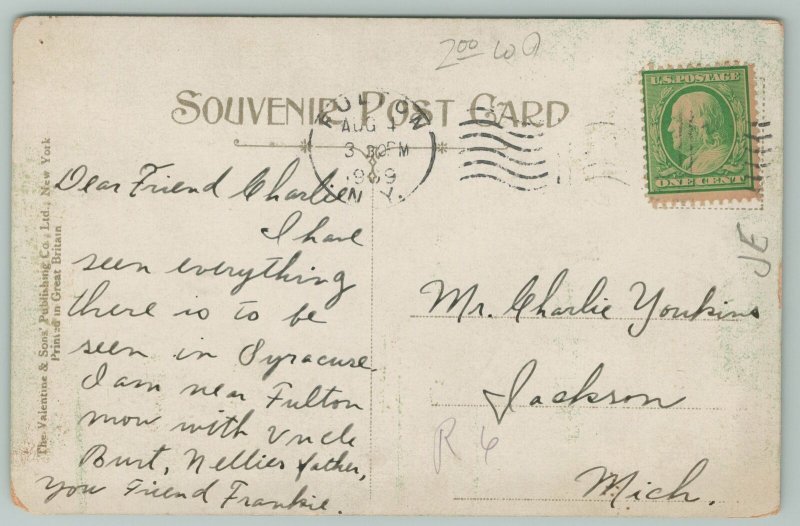 200
SOUVENIR POST CARD
FULTON
AUG 4
3 30PM
1909
N.Y.
U.S. POSTAGE
ONE CENT
The Valentine & Sons' Publishing Co., Ltd., New York
Printed in Great Britain
Dear Friend Charlie
I have
seen everything
there is to be
seen in Syracuse.
I am near Fulton
now with Uncle
Burt, Nellies father,
you Friend Frankie.
JE
Mr. Charlie Yonkins
Jackson
R 6
Mich.